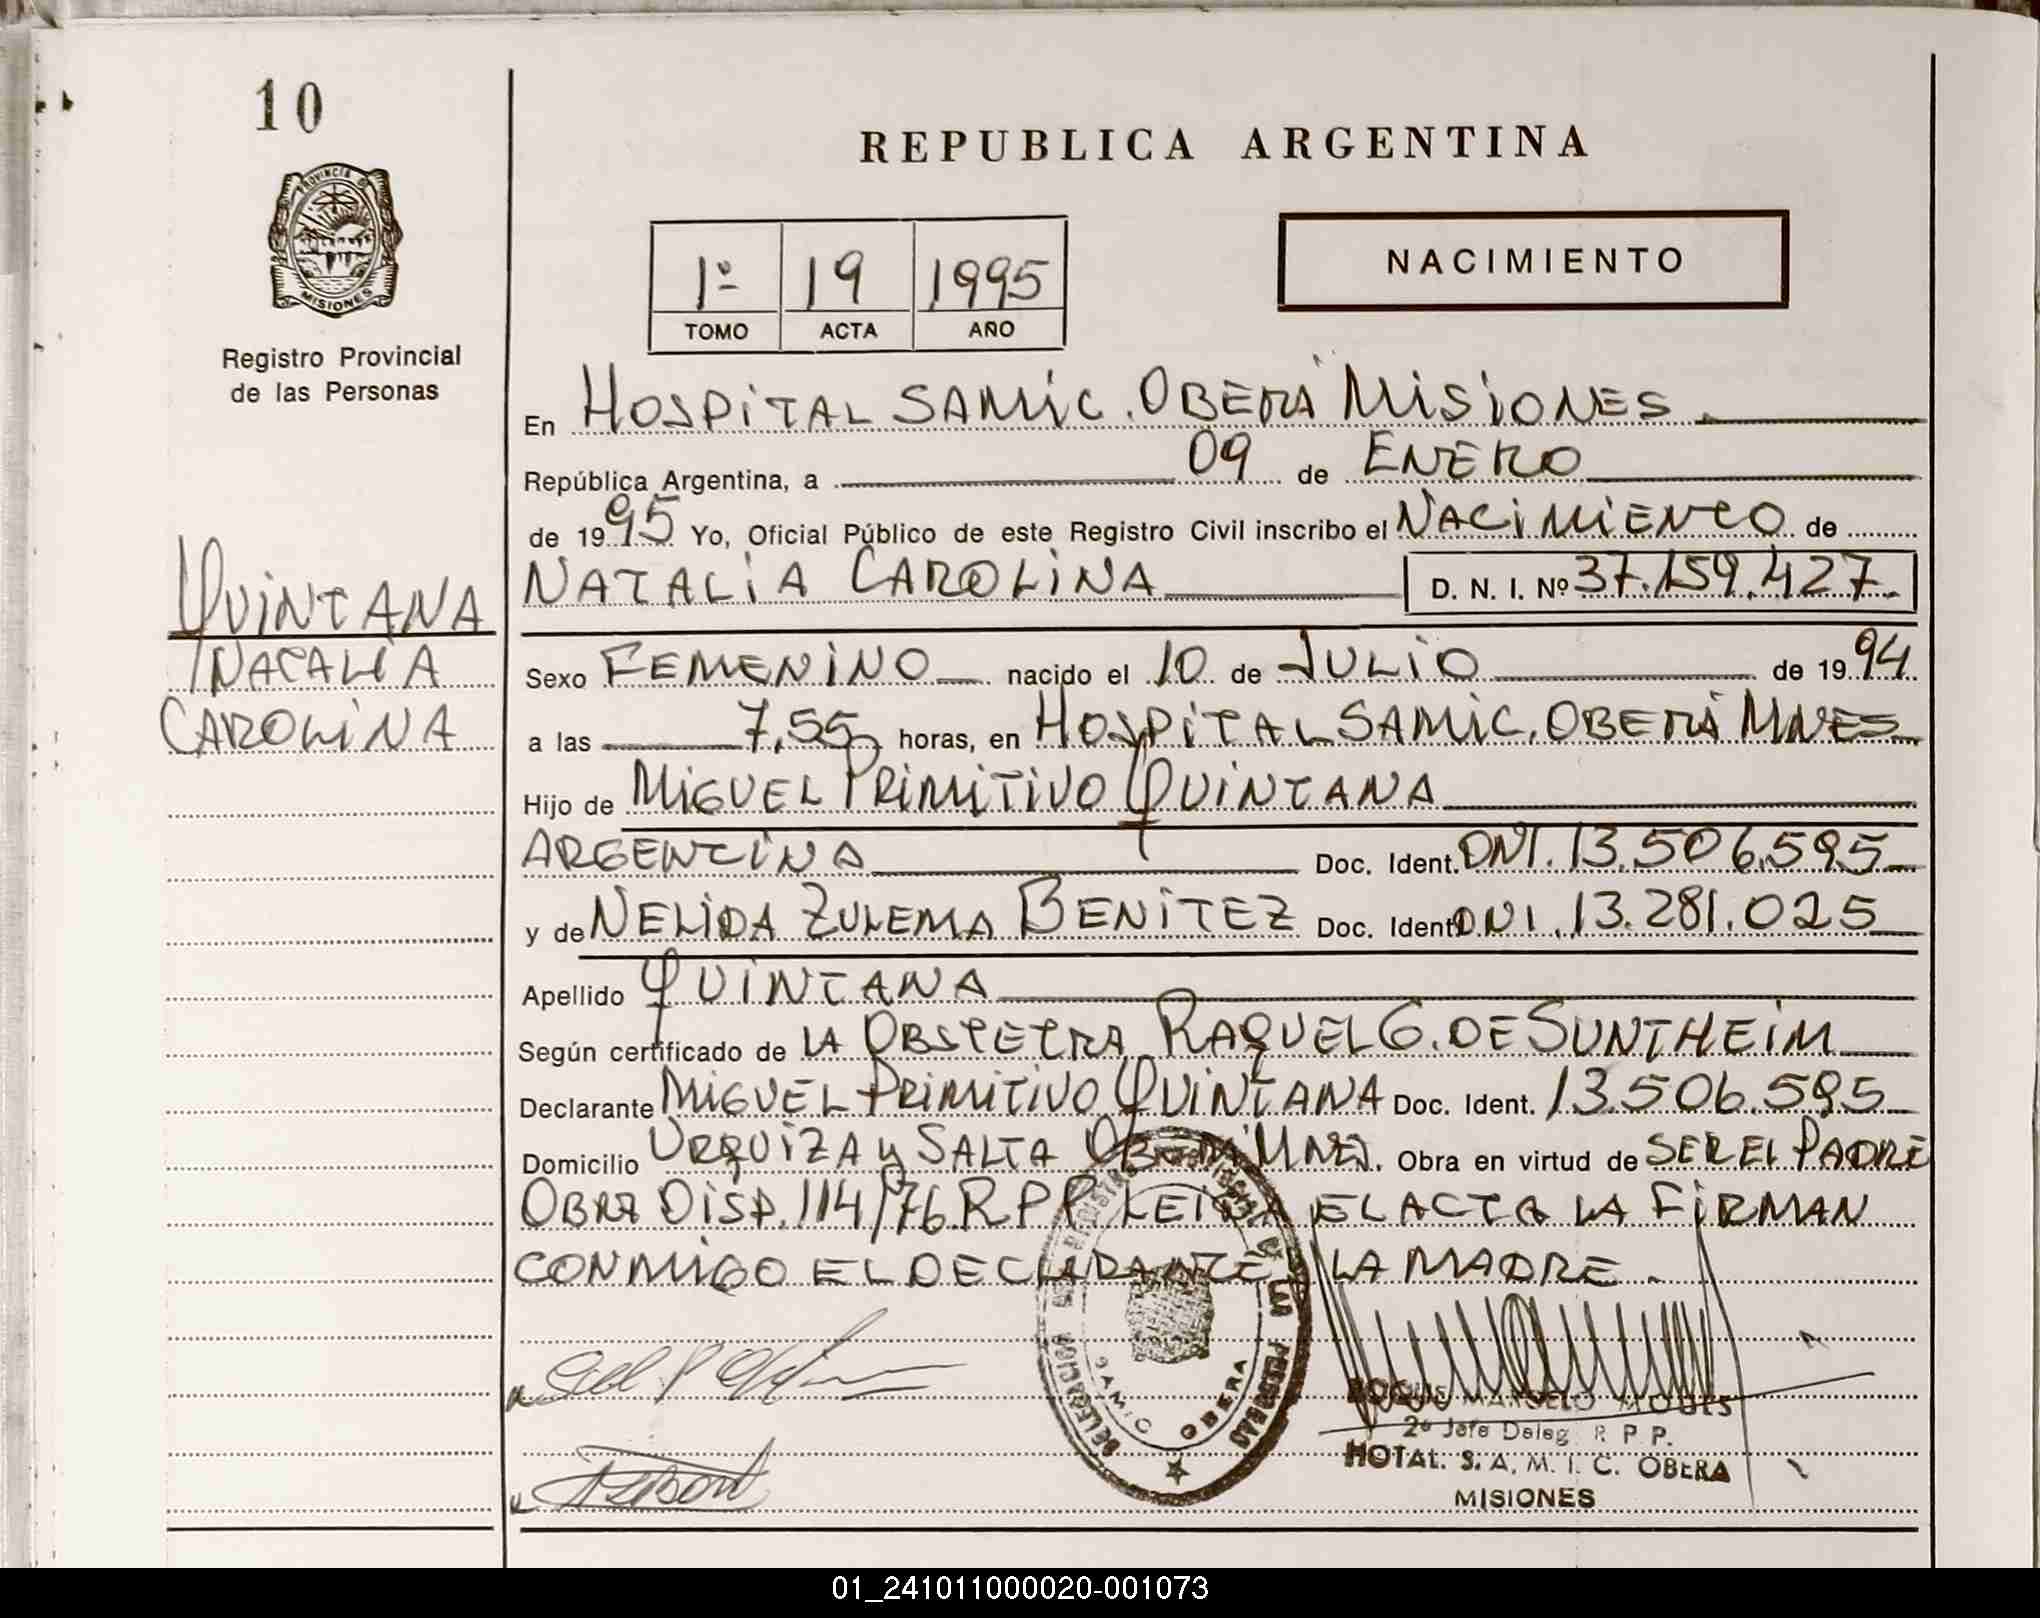 10
REPUBLICA ARGENTINA
PROVINCIA DE
MISIONES
Registro Provincial
de las Personas
1º 19 1995
TOMO ACTA AÑO
NACIMIENTO
En HOSPITAL SAMIC. OBERÁ MISIONES
República Argentina, a 09 de ENERO
de 1995 Yo, Oficial Público de este Registro Civil inscribo el NACIMIENTO de
NATALIA CAROLINA D. N. I. Nº 37.159.427.
QUINTANA
NATALIA
CAROLINA
Sexo FEMENINO nacido el 10 de JULIO de 1994
a las 7,55 horas, en HOSPITAL SAMIC. OBERÁ MNES
Hijo de MIGUEL PRIMITIVO QUINTANA
ARGENTINA Doc. Ident. DNI. 13.506.595
y de NELIDA ZULEMA BENITEZ Doc. Ident DNI. 13.281.025
Apellido QUINTANA
Según certificado de LA OBSTETRA RAQUEL G. DE SUNTHEIM
Declarante MIGUEL PRIMITIVO QUINTANA Doc. Ident. 13.506.595
Domicilio URQUIZA y SALTA OBERÁ MNES. Obra en virtud de SER EL PADRE
OBRA DISP. 114/76 R P P. LEIDA EL ACTA LA FIRMAN
CONMIGO EL DECLARANTE LA MADRE.
DELEGACION
SAMIC OBERA
ROQUE MARCELO
2º Jefe Deleg. R. P. P.
HOTAL. S. A. M. I. C. OBERA
MISIONES
01_241011000020-001073